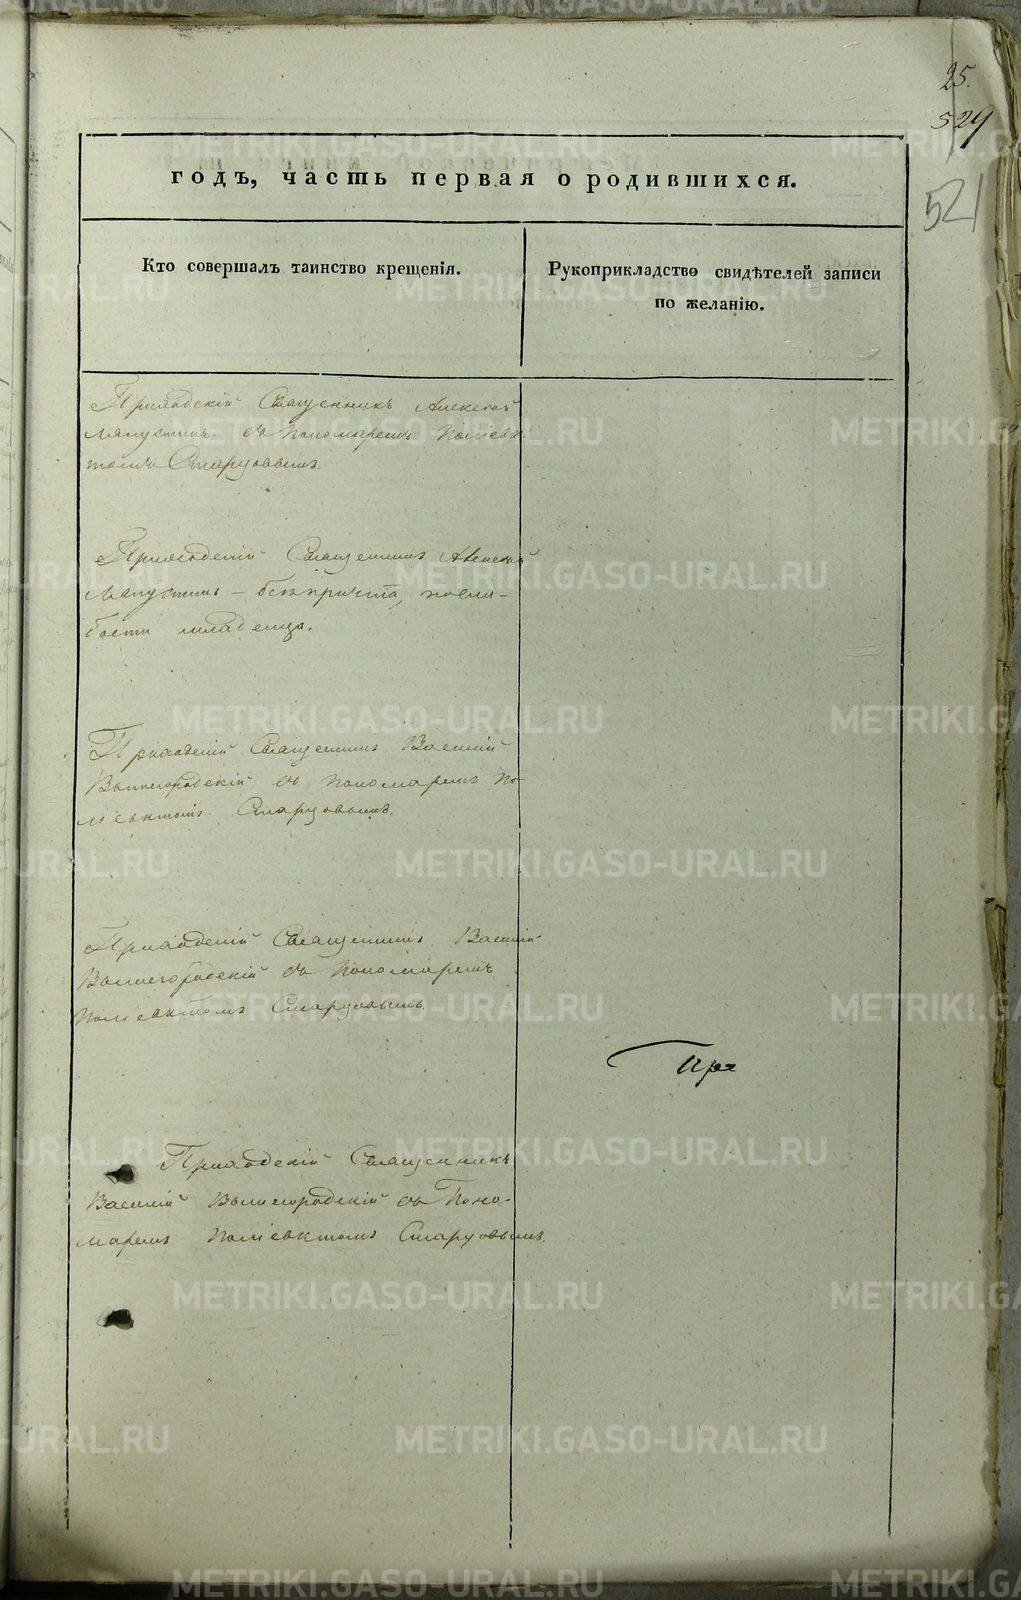 25.
529
521
годъ, часть первая о родившихся.
Кто совершалъ таинство крещенія.
Рукоприкладство свидѣтелей записи
по желанію.
Приходскій Священникъ Алексѣй
Ляпустинъ съ Пономаремъ Поліевк-
томъ Старцовымъ.
Приходскій Священникъ Алексѣй
Ляпустинъ – безъ причта, по сла-
бости младенца.
Приходскій Священникъ Василій
Вышегородскій съ Пономаремъ По-
ліевктомъ Старцовымъ.
Приходскій Священникъ Василій
Вышегородскій съ Пономаремъ
Поліевктомъ Старцовымъ.
При
Приходскій Священникъ
Василій Вышегородскій съ Поно-
маремъ Поліевктомъ Старцовымъ.
METRIKI.GASO-URAL.RU